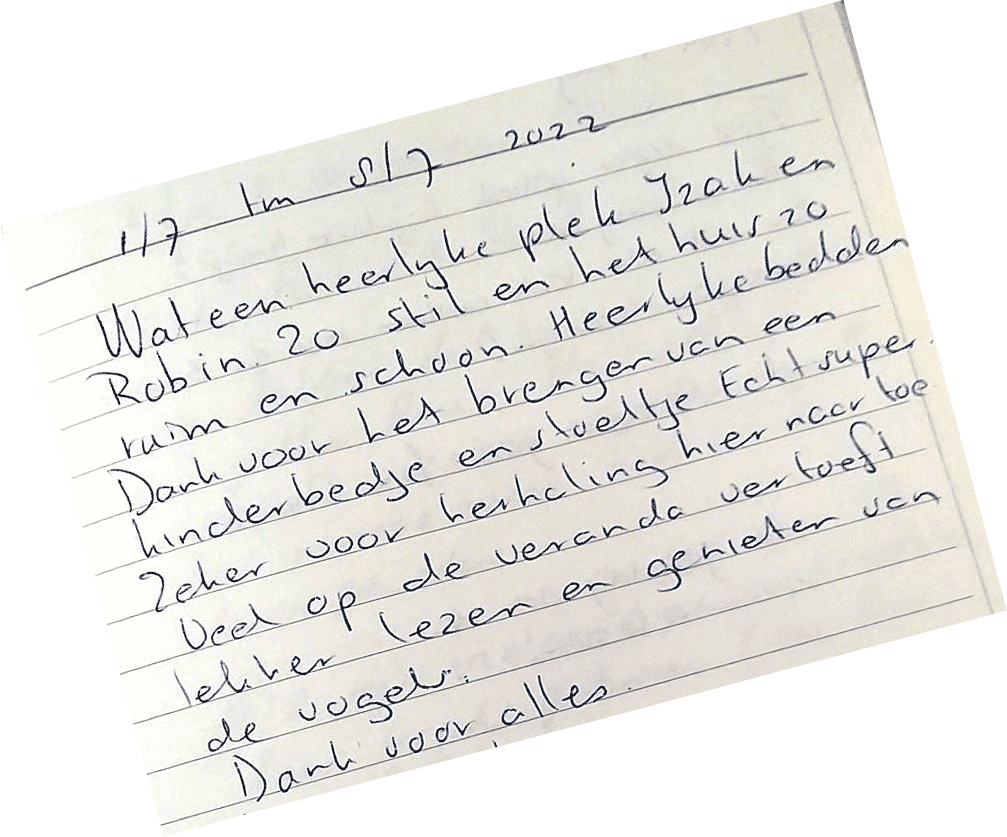 1/7 tm 8/7 2022
Wat een heerlyke plek Izak en
Robin. Zo stil en het huis zo
ruim en schoon. Heerlyke bedden
Dank voor het brengen van een
kinderbedje en stoeltje Echt super.
Zeker voor herhaling hier naar toe
Veel op de veranda vertoeft
lekker lezen en genieten van
de vogels.
Dank voor alles.